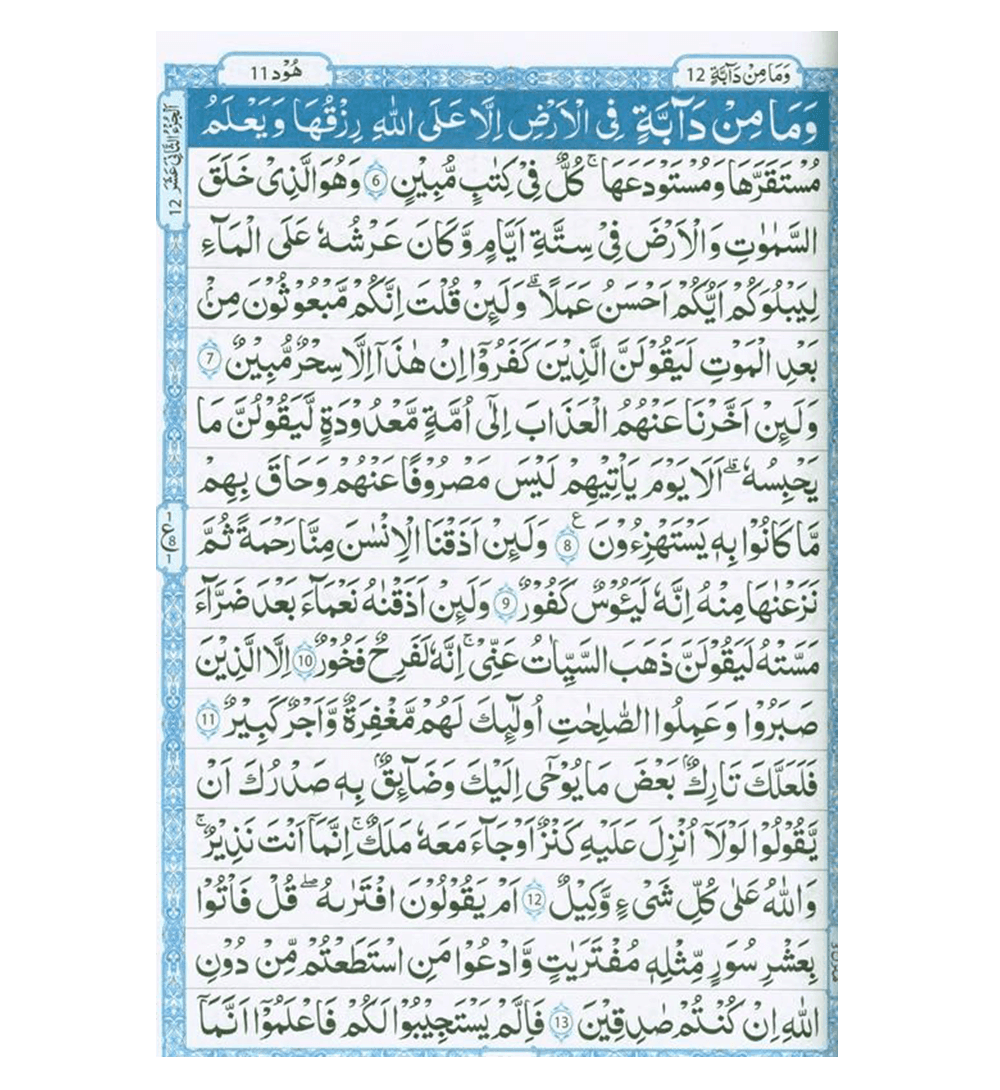 وَمَا مِنْ دَآبَّةٍ 12
هُوْد 11
وَمَا مِنْ دَآبَّةٍ فِى الْاَرْضِ اِلَّا عَلَى اللّٰهِ رِزْقُهَا وَيَعْلَمُ
مُسْتَقَرَّهَا وَمُسْتَوْدَعَهَا ۚ كُلٌّ فِىْ كِتٰبٍ مُّبِيْنٍ 6 وَهُوَ الَّذِىْ خَلَقَ
السَّمٰوٰتِ وَالْاَرْضَ فِىْ سِتَّةِ اَيَّامٍ وَّكَانَ عَرْشُهٗ عَلَى الْمَآءِ
لِيَبْلُوَكُمْ اَيُّكُمْ اَحْسَنُ عَمَلًا ؕ وَلَئِنْ قُلْتَ اِنَّكُمْ مَّبْعُوْثُوْنَ مِنْۢ
بَعْدِ الْمَوْتِ لَيَقُوْلَنَّ الَّذِيْنَ كَفَرُوْۤا اِنْ هٰذَاۤ اِلَّا سِحْرٌ مُّبِيْنٌ 7
وَلَئِنْ اَخَّرْنَا عَنْهُمُ الْعَذَابَ اِلٰٓى اُمَّةٍ مَّعْدُوْدَةٍ لَّيَقُوْلُنَّ مَا
يَحْبِسُهٗ ؕ اَلَا يَوْمَ يَاْتِيْهِمْ لَيْسَ مَصْرُوْفًا عَنْهُمْ وَحَاقَ بِهِمْ
مَّا كَانُوْا بِهٖ يَسْتَهْزِءُوْنَ ع 8 وَلَئِنْ اَذَقْنَا الْاِنْسٰنَ مِنَّا رَحْمَةً ثُمَّ
نَزَعْنٰهَا مِنْهُ اِنَّهٗ لَيَـُٔوْسٌ كَفُوْرٌ 9 وَلَئِنْ اَذَقْنٰهُ نَعْمَآءَ بَعْدَ ضَرَّآءَ
مَسَّتْهُ لَيَقُوْلَنَّ ذَهَبَ السَّيِّاٰتُ عَنِّىْ ؕ اِنَّهٗ لَفَرِحٌ فَخُوْرٌ 10 اِلَّا الَّذِيْنَ
صَبَرُوْا وَعَمِلُوا الصّٰلِحٰتِ اُولٰٓئِكَ لَهُمْ مَّغْفِرَةٌ وَّاَجْرٌ كَبِيْرٌ 11
فَلَعَلَّكَ تَارِكٌۢ بَعْضَ مَا يُوْحٰٓى اِلَيْكَ وَضَآئِقٌۢ بِهٖ صَدْرُكَ اَنْ
يَّقُوْلُوْا لَوْلَاۤ اُنْزِلَ عَلَيْهِ كَنْزٌ اَوْ جَآءَ مَعَهٗ مَلَكٌ ؕ اِنَّمَاۤ اَنْتَ نَذِيْرٌ ؕ
وَاللّٰهُ عَلٰى كُلِّ شَىْءٍ وَّكِيْلٌ 12 اَمْ يَقُوْلُوْنَ افْتَرٰٮهُ ؕ قُلْ فَاْتُوْا
بِعَشْرِ سُوَرٍ مِّثْلِهٖ مُفْتَرَيٰتٍ وَّادْعُوْا مَنِ اسْتَطَعْتُمْ مِّنْ دُوْنِ
اللّٰهِ اِنْ كُنْتُمْ صٰدِقِيْنَ 13 فَاِلَّمْ يَسْتَجِيْبُوْا لَكُمْ فَاعْلَمُوْۤا اَنَّمَاۤ
الْجُزْءُ الثَّانِیْ عَشَرَ 12
1
ع 8
1